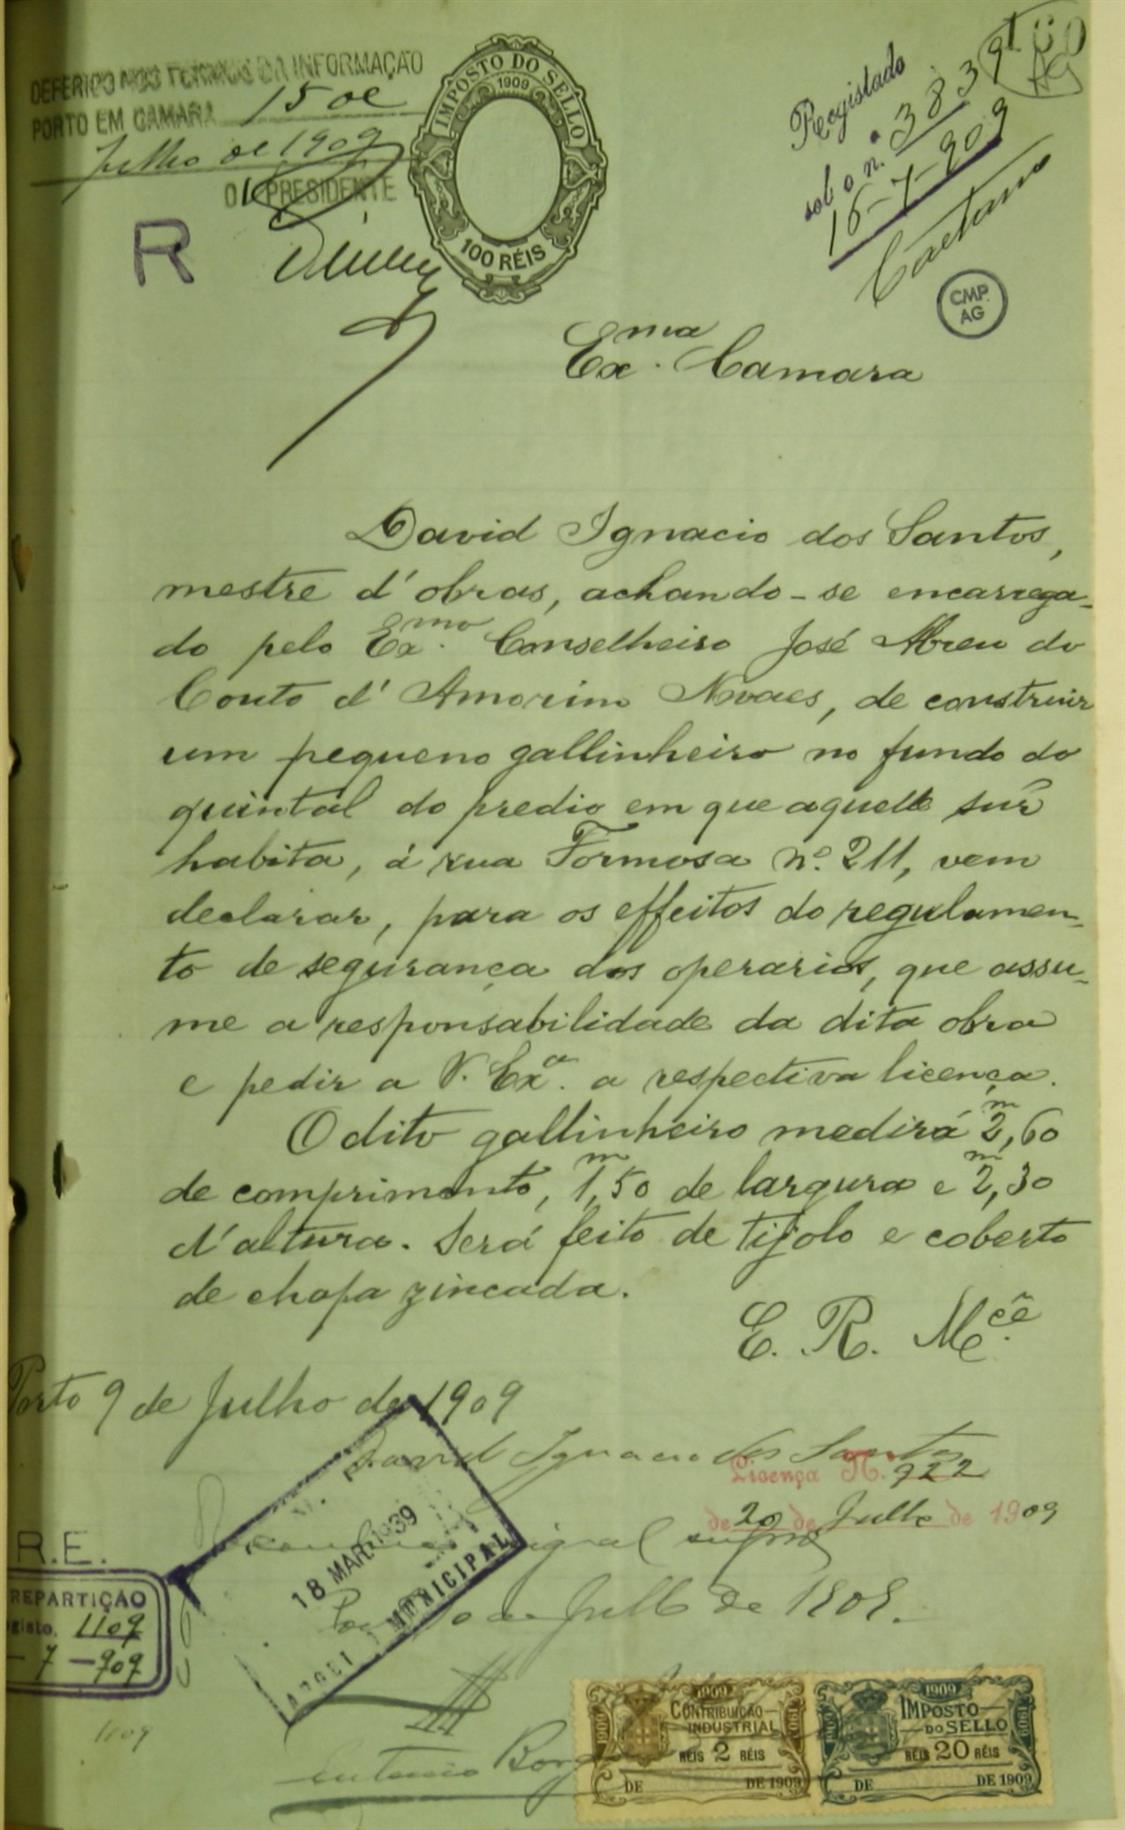 DEFERIDO NOS TERMOS DA INFORMAÇÃO
PORTO EM CAMARA 15 de
Julho de 1909
O PRESIDENTE
R
IMPOSTO DO SELLO
1909
100 RÉIS
Registado
sob o n.º 3839
16-7-909
Caetano
CMP.
AG
Exma. Camara
David Ignacio dos Santos,
mestre d'obras, achando-se encarrega-
do pelo Exmo. Conselheiro José Abreu do
Couto d'Amorim Novaes, de construir
um pequeno gallinheiro no fundo do
quintal do predio em que aquelle snr
habita, á rua Formosa nº. 211, vem
declarar, para os effeitos do regulamen-
to de segurança dos operarios, que assu-
me a responsabilidade da dita obra
e pedir a V. Exa. a respectiva licença.
O dito gallinheiro medirá 2,m60
de comprimento, 1,m50 de largura e 2,m30
d'altura. Será feito de tijolo e coberto
de chapa zincada.
E. R. Mcê.
Porto 9 de Julho de 1909
David Ignacio dos Santos
Licença N.º 922
de 20 de Julho de 1909
signal supra
Julho de 1909.
18 MAR. 1939
MUNICIPAL
R.E.
REPARTIÇÃO
1109
-7-909
1109
Antonio
1909
CONTRIBUIÇÃO
INDUSTRIAL
RÉIS 2 RÉIS
DE DE 1909
1909
IMPOSTO
DO SELLO
RÉIS 20 RÉIS
DE DE 1909